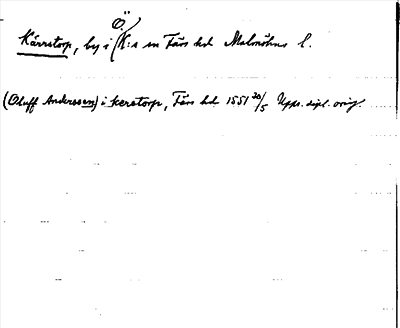 Ö.
Kärrstorp, by i K:s sn Färs hd Malmöhus l.
(Oluff Anderssen) i kerstorp, Färs hd 1551 20/5 Upps. dipl. orig.